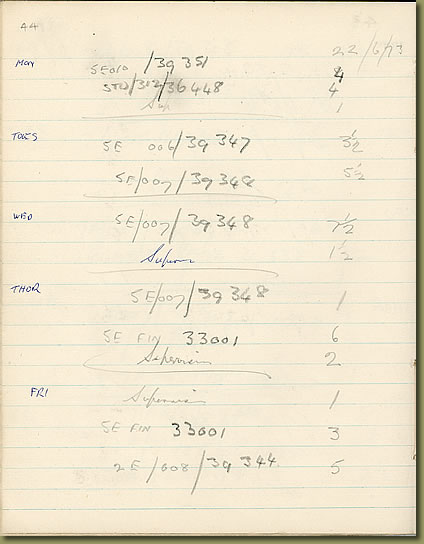 44
22/6/73
MON SE010/39 351 4
STD/312/36448 4
Sup 1
TUES SE 006/39 347 3½
SE/007/39 348 5½
WED SE/007/39 348 7½
Supervi 1½
THUR SE/007/39 348 1
SE FIN 33001 6
Supervision 2
FRI Supervisi 1
SE FIN 33001 3
2E/008/39 344 5